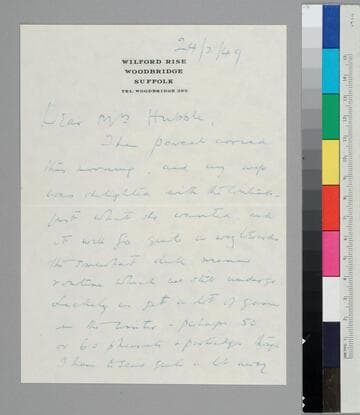 24/3/49
WILFORD RISE
WOODBRIDGE
SUFFOLK
TEL. WOODBRIDGE 293.
Dear Mrs Hubble,
The parcel arrived
this morning, and my wife
was delighted with the
just what she wanted, and
it will go quite a way towards
the somewhat dull
routine which we still undergo
Luckily we get a lot of game
in the winter - perhaps 50
or 60 pheasants & partridges
I have to send quite a lot away